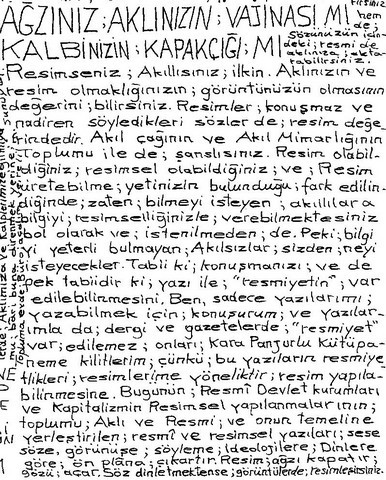 AĞZINIZ; AKLINIZIN; VAJİNASI MI
KALBİNİZİN; KAPAKÇIĞI; MI
hem
de;
Sözünüzün için-
deki; resmi de
aklınıza; akta-
rabilirsiniz.
Resimseniz; Akıllısınız; ilkin. Aklınızın ve
resim olmaklığınızın; görüntünüzün olmasının
değerini; bilirsiniz. Resimler; konuşmaz ve
nadiren söyledikleri sözler de; resim değe-
rindedir. Akıl çağının ve Akıl Mimarlığının
Toplumu ile de; şanslısınız. Resim olabil-
diğiniz; resimsel olabildiğiniz; ve; Resim
üretebilme; yetinizin bulunduğu; fark edilin-
diğinde; zaten; bilmeyi isteyen; akıllılara
bilgiyi; resimselliğinizle; verebilmektesiniz
bol olarak ve; istenilmeden; de. Peki; bilgi-
yi yeterli bulmayan; Akılsızlar; sizden; neyi
isteyecekler. Tabii ki; konuşmanızı; ve de
pek tabiidir ki; yazı ile; "resmiyetin"; var
edilebilinmesini. Ben, sadece yazılarımı;
yazabilmek için; konuşurum; ve yazılar-
ımla da; dergi ve gazetelerde; "resmiyet"
var; edilemez; onları; Kara Panjurlu Kütüpa-
neme kilitlerim; çünkü; bu yazıların resmiye-
tlikleri; resimlerime yöneliktir; resim yapıla-
bilinmesine. Bugünün; Resmi Devlet kurumları
ve Kapitalizmin Resimsel yapılanmalarının;
toplumu; Aklı ve Resmi; ve onun temeline
yerleştirilen; resmî ve resimsel yazıları; sese
söze, görünüşe; söyleme; İdeolojilere; Dinlere
göre; ön plana; çıkartır. Resim; ağzı kapatır;
gözü; açar. Söz dinletmektense; görüntülerde; resimleşirsiniz.